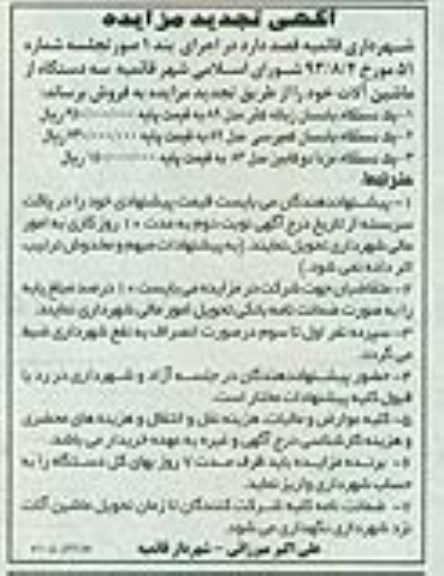 آگهی تجدید مزایده
شهرداری قائمیه قصد دارد در اجرای بند ۱ صورتجلسه شماره
۵۱ مورخ ۹۳/۸/۴ شورای اسلامی شهر قائمیه سه دستگاه از
ماشین آلات خود را از طریق تجدید مزایده به فروش برساند:
۱- یک دستگاه نیسان زباله مدل به قیمت پایه ریال
۲- یک دستگاه نیسان کمپرسی مدل به قیمت پایه ریال
۳- یک دستگاه مزدا دوکابین مدل به قیمت پایه ریال
شرایط:
۱- پیشنهاددهندگان می بایست قیمت پیشنهادی خود را در پاکت
سربسته از تاریخ درج آگهی نوبت دوم به مدت ۱۰ روز کاری به امور
مالی شهرداری تحویل نمایند. (به پیشنهادات مبهم و مخدوش ترتیب
اثر داده نمی شود.)
۲- متقاضیان جهت شرکت در مزایده می بایست ۱۰ درصد مبلغ پایه
را به صورت ضمانت نامه بانکی تحویل امور مالی شهرداری نمایند.
۳- سپرده نفر اول تا سوم در صورت انصراف به نفع شهرداری ضبط
می گردد.
۴- حضور پیشنهاددهندگان در جلسه آزاد و شهرداری در رد یا
قبول کلیه پیشنهادات مختار است.
۵- کلیه عوارض و مالیات، هزینه نقل و انتقال و هزینه های محضری
و هزینه کارشناسی درج آگهی و غیره به عهده خریدار می باشد.
۶- برنده مزایده باید ظرف مدت ۷ روز بهای کل دستگاه را به
حساب شهرداری واریز نماید.
۷- ضمانت نامه کلیه شرکت کنندگان تا زمان تحویل ماشین آلات
نزد شهرداری نگهداری می شود.
علی اکبر میرزائی - شهردار قائمیه